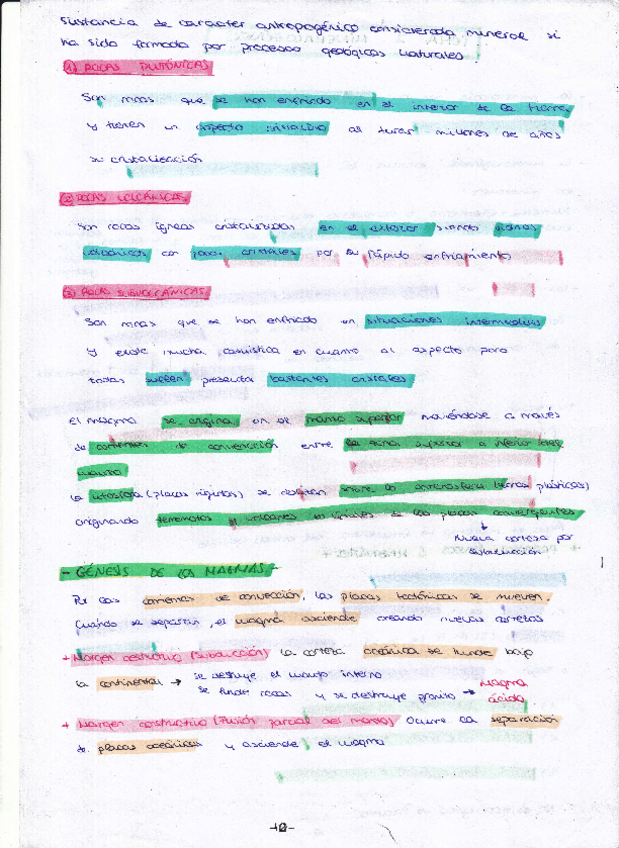 Sustancia de caracter antropogénico considerada mineral si
ha sido formada por procesos geológicos naturales.
1) ROCAS PLUTÓNICAS
Son rocas que se han enfriado en el interior de la tierra,
y tienen un aspecto cristalino al tardar millones de años
su cristalización
2) ROCAS VOLCÁNICAS
Son rocas ígneas cristalizadas en el exterior siendo
volcánicas con pocos cristales por su rápido enfriamiento
3) ROCAS SUBVOLCÁNICAS
Son rocas que se han enfriado en situaciones intermedias
y existe mucha casuística en cuanto al aspecto pero
todas suelen presentar bastantes cristales
El magma se origina en el manto superior moviéndose a través
de corrientes de convección entre la zona superior e inferior del
manto
La litosfera (placas rígidas) se deslizan sobre la astenosfera (plásticas)
originando terremotos y volcanes en límites de las placas convergentes
↓
Nueva corteza por
subducción
- GÉNESIS DE LOS MAGMAS -
Por las corrientes de convección, las placas tectónicas se mueven.
Cuando se separan, el magma asciende creando nuevas cortezas
+ Margen destructivo (Subducción) La corteza oceánica se hunde bajo
la continental → se destruye el manto interno
se funden rocas y se destruye granito → Magma
ácido
+ Margen constructivo (Fusión parcial del manto) Ocurre la separación
de placas oceánicas y asciende el magma
-12-